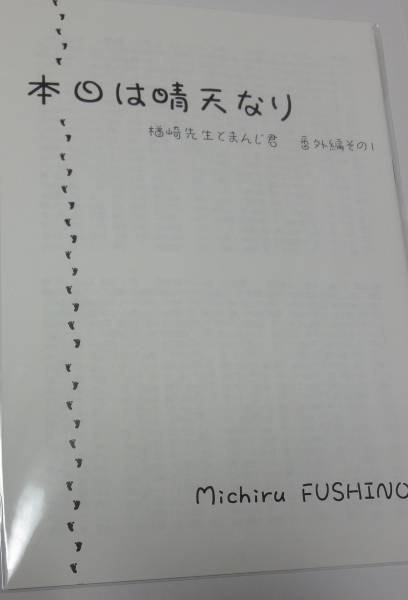 本日は晴天なり
楢崎先生とまんじ君　番外編その1
Michiru FUSHINO